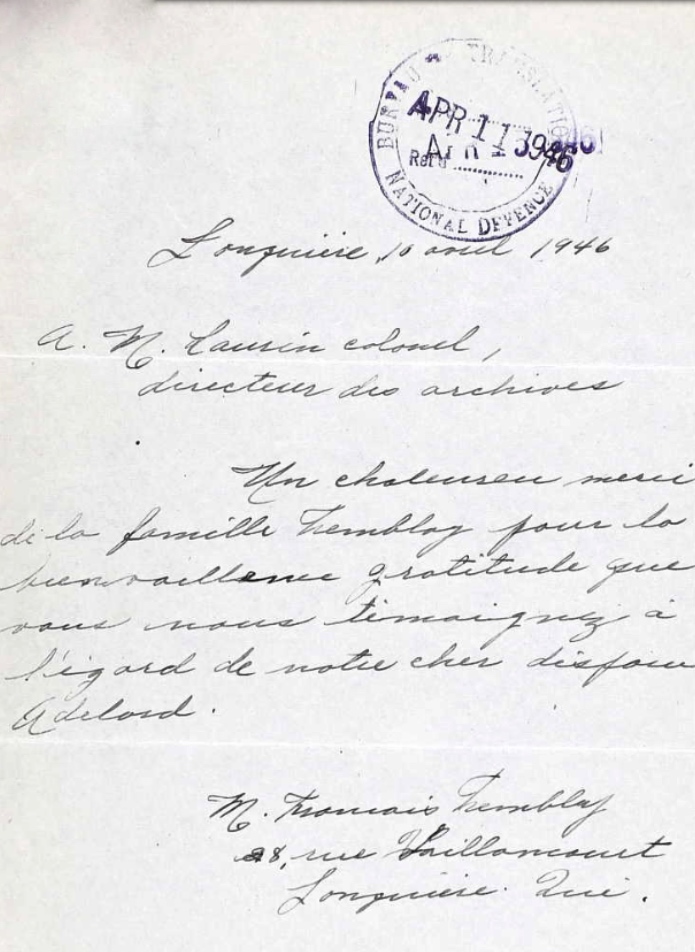 BUREAU TRANSLATION
APR 11 1946
NATIONAL DEFENCE
Jonquière, 10 avril 1946
A. M. Laurin colonel,
directeur des archives
Un chaleureu merci
de la famille Tremblay pour la
bienvaillence gratitude que
vous nous témoignez à
l'égard de notre cher disparu
Adelard.
M. Francois Tremblay
28, rue Vaillancourt
Jonquiere. Qué.